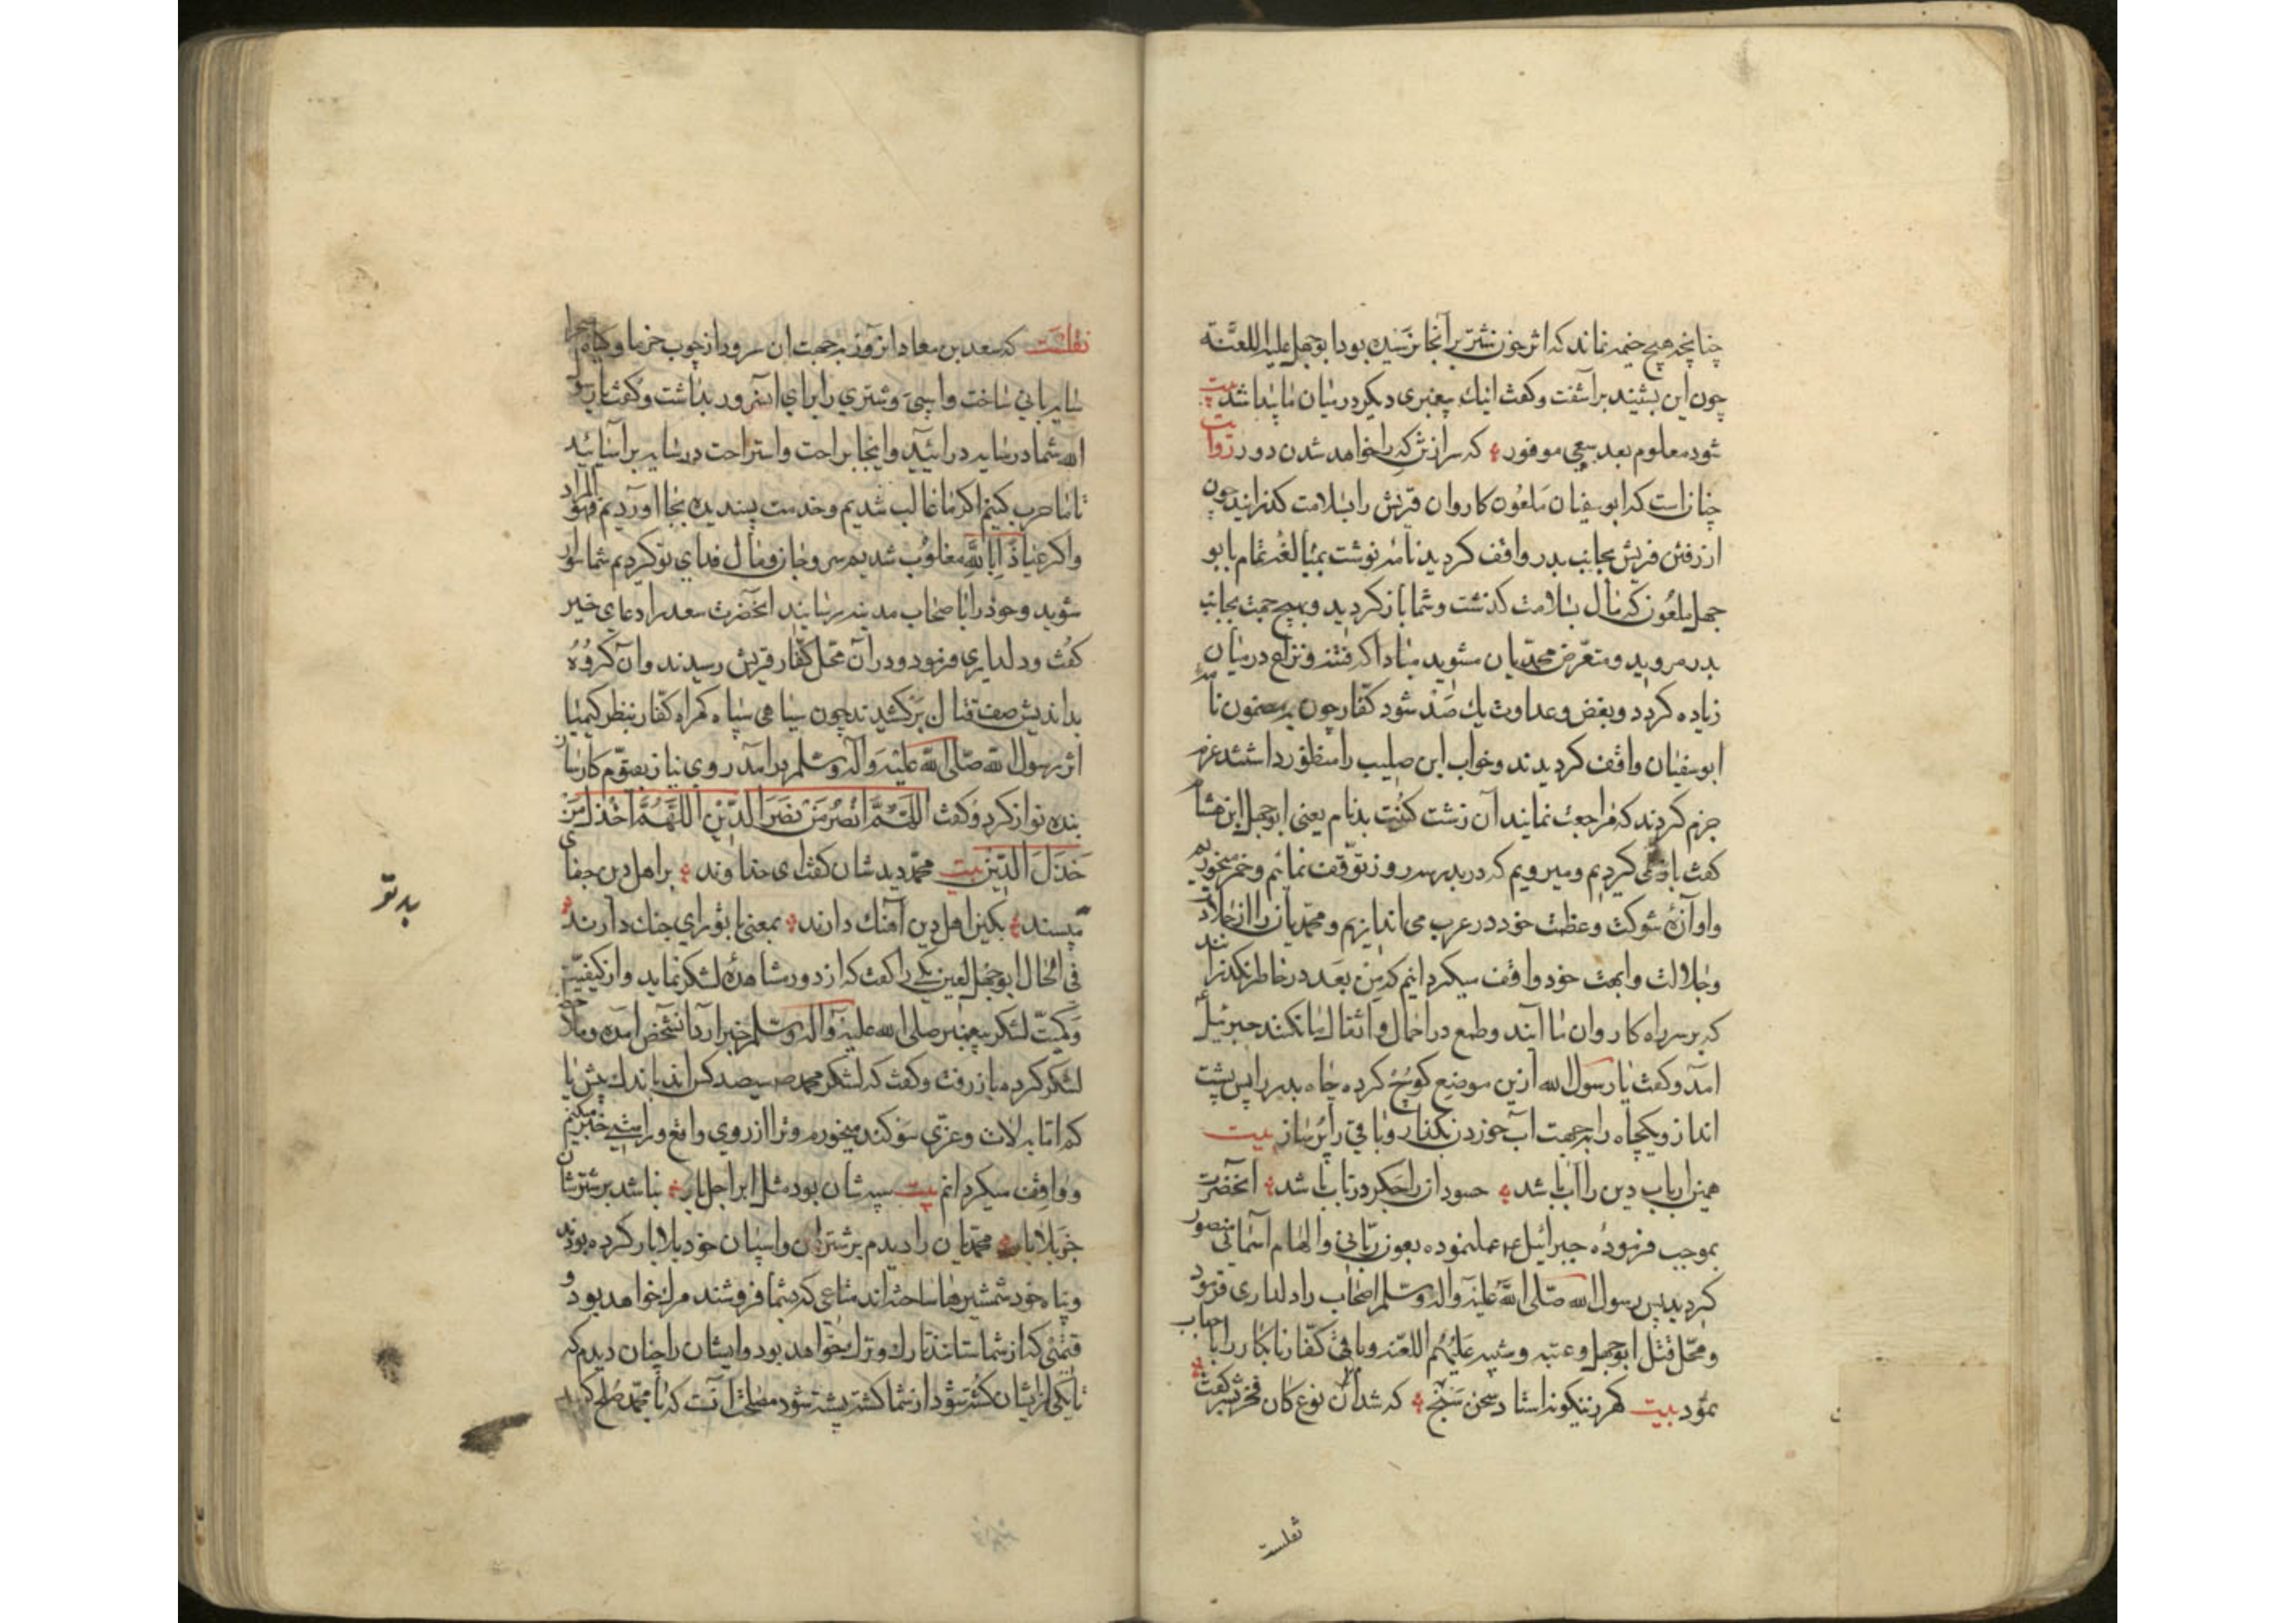 چنانچه هیچ خیمه نماند که اثر خون شتر بر آنجا نرسیده بود ابوجهل علیه اللعنة
چون این بشنید برآشفت و گفت اینك پیغمبری دیگر در میان ما پیدا شد بیت
شود معلوم بعد سعی موفور که سر از تن که را خواهد شدن دور روایت
چنان است که ابوسفیان ملعون کاروان قریش را بسلامت گذرانید چون
از رفتن قریش بجانب بدر واقف گردید نامه نوشت بمبالغه تمام بابو
جهل ملعون که مال بسلامت گذشت و شما باز گردید و بهیچ جهت بجانب
بدر مروید و متعرض محمدیان مشوید مبادا که فتنه و نزاع در میان
زیاده گردد و بغض و عداوت یك صد شود کفار چون بر مضمون نامه
ابوسفیان واقف گردیدند و خواب ابن صلیب را منظور داشتند عزم
جزم کردند که مراجعت نمایند آن زشت کنیت بدنام یعنی ابوجهل ابن هشام
گفت باز نمی گردیم و میرویم که در بدر سه روز توقف نمائیم و خمر میخوریم
و آوازهٔ شوکت و عظمت خود در عرب می اندازیم و محمدیان را از جلادت
و جلالت و ابهت خود واقف میگردانیم که من بعد در خاطر نگذرانند
که بر سر راه کاروان ما آیند و طمع در احمال و اثقال ما نکنند جبرئیل
آمد و گفت یا رسول الله ازین موضع کوچ کرده چاه بدر را پس پشت
انداز و یکچاه را بجهت آب خوردن بگذار و باقی را پر ساز بیت
همز ارباب دین را آب باشد حسودان را جگر در تاب باشد آنحضرت
بموجب فرمودهٔ جبرائیل ع م عمل نموده بعون ربانی و الهام آسمانی منصور
گردید پس رسول الله صلی الله علیه وآله وسلم اصحاب را دلداری فرمود
و محل قتل ابوجهل و عتبه و شیبه علیهم اللعنه و باقی کفار نابکار را باصحاب
نمود بیت گهر ز نیگونه استاد سخن سنج که شد آن نوع کان
نقلست
نقلست که سعد بن معاد آن روز بجهت آن سرور از چوب خرما و گیاه صحرا
سایه بانی ساخت و اسپی و شتری را برای آن سرور بداشت و گفت یا رسول
الله شما در سایه درائید و اینجا براحت و استراحت در سایه برآسائید
تا ما حرب کنیم اگر ما غالب شدیم و خدمت پسندیده بجا آوردیم فهو المراد
و اگر عیاذا بالله مغلوب شدیم سر و جان و مال فدای تو کردیم شما سوار
شوید و خود را باصحاب مدینه رسانید آنحضرت سعد را دعای خیر
گفت و دلداری فرمود و در آن محل کفار قریش رسیدند و آن گروه
بداندیش صف قتال برکشیدند چون سیاهی سپاه گمراه کفار بنظر کیمیا
اثر رسول الله صلی الله علیه وآله وسلم درآمد روی نیاز بصوب کارساز
بنده نواز کرد و گفت اللهم انصر من نصر الدین اللهم اخذل من
خذل الدین بیت محمد دید شان گفت ای خداوند بر اهل دین جفای
مپسند بکین اهل دین آهنك دارند بمعنی با تو رای جنك دارند
فی الحال ابوجهل لعین یکی را گفت که از دور مشاهدهٔ لشکر نماید و از کیفیت
و کمیت لشکر پیغمبر صلی الله علیه وآله وسلم خبر آرد آنشخص آمده و ملاحظه
لشکر کرده باز رفت و گفت که لشکر محمد سیصد کس اند باندك بیش یا
کم اما به لات و عزی سوگند میخورم و ترا از روی واقع و راستی خبر میکنم
و واقف میگردانم بیت سپه شان بود مثل ابر اجل بار نباشد بر شترشان
جز بلا بار محمدیان را دیدم بر شتران و اسپان خود بلا بار کرده بودند
و پناه خود شمشیرها ساخته اند متاعی که بشما فروشند مرك خواهد بود و
قیمتی که از شما ستانند تارك و ترك خواهد بود و ایشان را چنان دیدم که
تا یکی از یشان کشته شود از شما کشته پشته شود مصلحت آنست که با محمد صلح کنید
بد تو